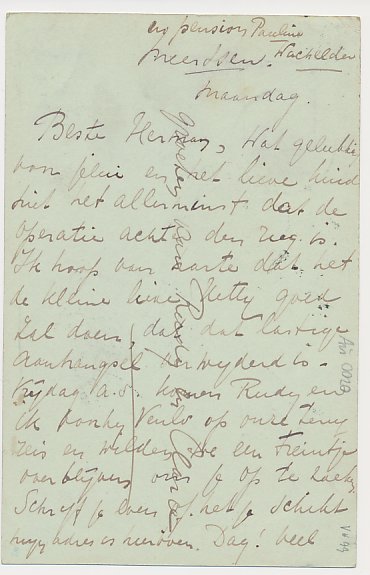 p/a pension Pauline
Meerssen. Wachelder
Maandag.
Beste Herman, Wat gelukkig
voor jelui en het lieve kind
niet het allerminst dat de
operatie achter den rug is.
Ik hoop van harte dat het
de kleine lieve Hetty goed
zal doen, dat dat lastige
aanhangsel verwijderd is.
Vrijdag a.s. komen Rudy en
ik voorbij Venlo op onze terug
reis en wilden we een treintje
overblijven om je op te zoeken
Schrijf je even of het je schikt
mijn adres is hierboven. Dag! veel
groeten van Rudy en Clara